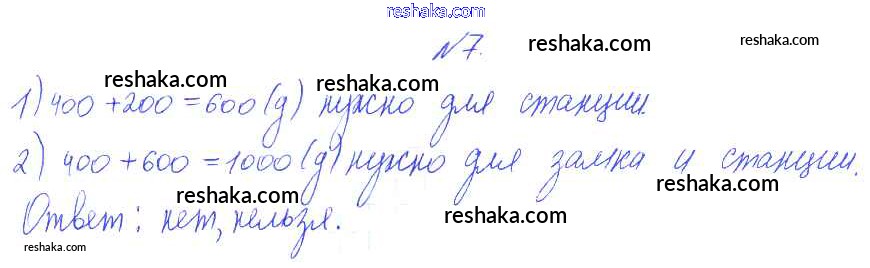 reshaka.com
№7. reshaka.com reshaka.com
reshaka.com reshaka.com
1) 400 + 200 = 600 (д) нужно для станции.
2) 400 + 600 = 1000 (д) нужно для замка и станции.
reshaka.com reshaka.com
Ответ: нет, нельзя. reshaka.com
reshaka.com